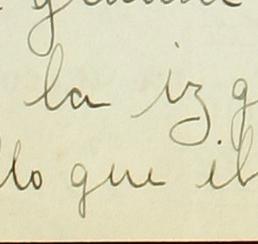 la iz q
llo que el